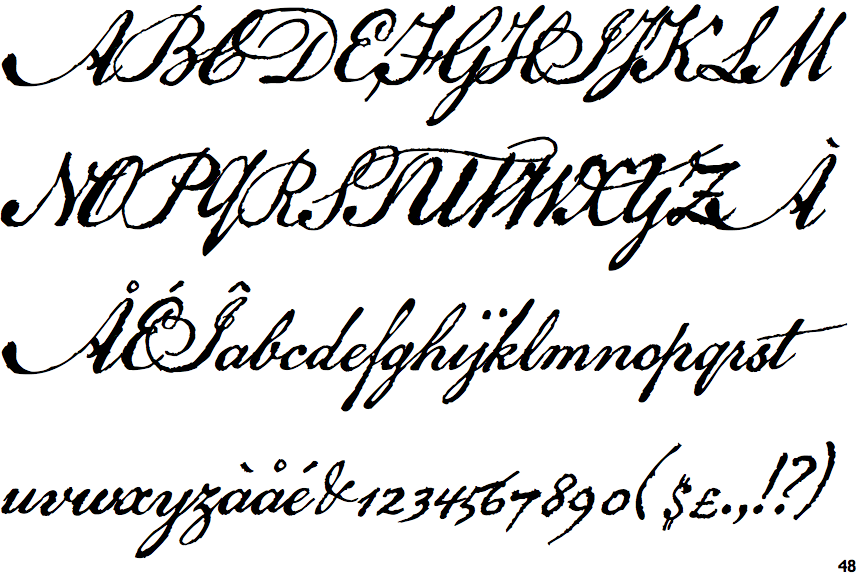 ABCDEFGHIJKLM
NOPQRSTUVWXYZÀ
ÅÉÎabcdefghijklmnopqrst
uvwxyzàåé&1234567890($£.,!?)
48